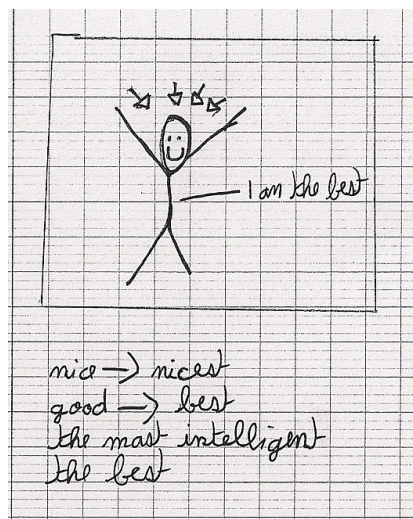 I am the best
nice → nicest
good → best
the mast intelligent
the best